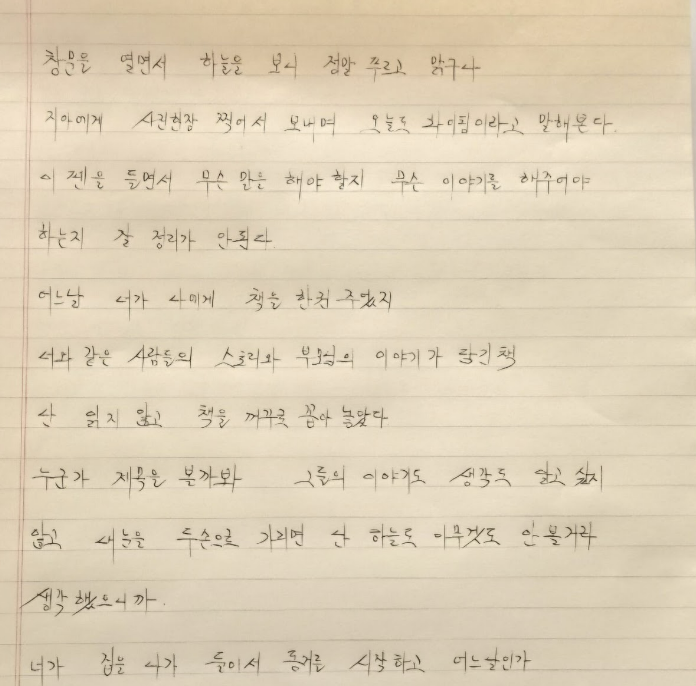 창문을 열면서 하늘을 보니 정말 푸르고 맑구나
지아에게 사진한장 찍어서 보내며 오늘도 화이팅이라고 말해본다.
이 펜을 들면서 무슨 말을 해야 할지 무슨 이야기를 해주어야
하는지 잘 정리가 안된다.
어느날 너가 나에게 책을 한권 주었지
너와 같은 사람들의 스토리와 부모님의 이야기가 담긴 책
난 읽지 않고 책을 꺼꾸로 꼽아 놓았다
누군가 제목을 볼까봐 그들의 이야기도 생각도 알고 싶지
않고 내눈을 두손으로 가리면 난 하늘도 아무것도 안 볼거라
생각했으니까.
너가 집을 나가 들이서 동거를 시작하고 어느날인가